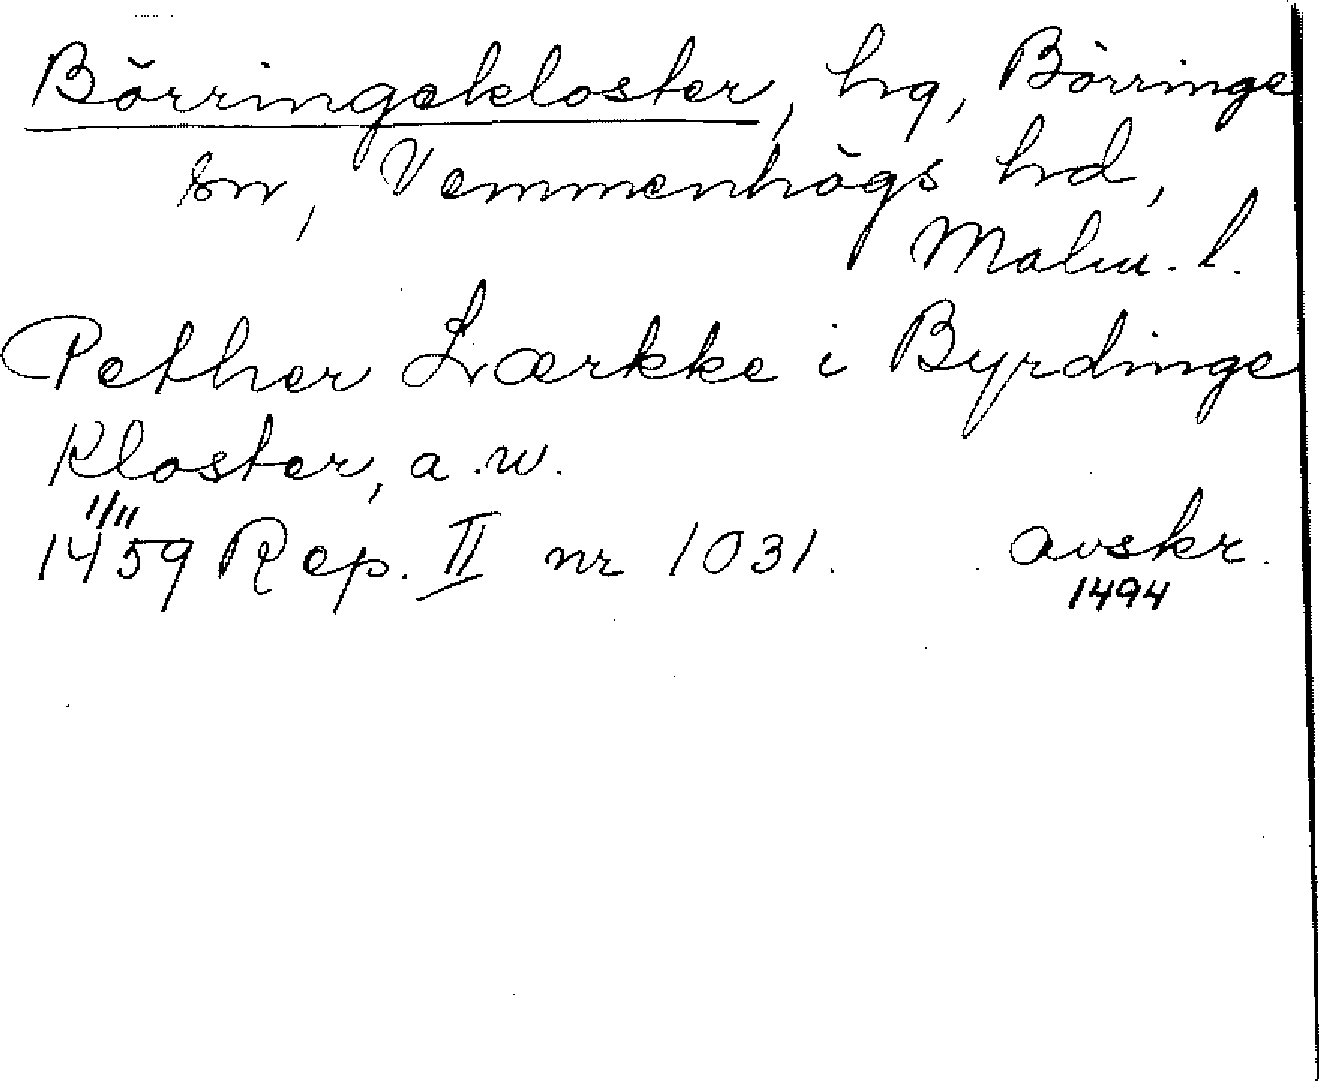 Börringekloster, hg, Börringe
sn, Vemmenhögs hd,
Malm. l.
Pether Lærkke i Byrdinge
kloster, a.w.
1/11
1459 Rep. II nr 1031. avskr.
1494